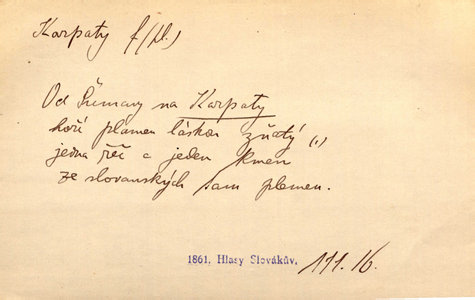 Karpaty f(pl.)
Od Šumavy na Karpaty
hoří plamen láskou zňatý (,)
jedna řeč a jeden kmen
ze slovanských sam plemen.
1861. Hlasy Slovákův. 111.16.